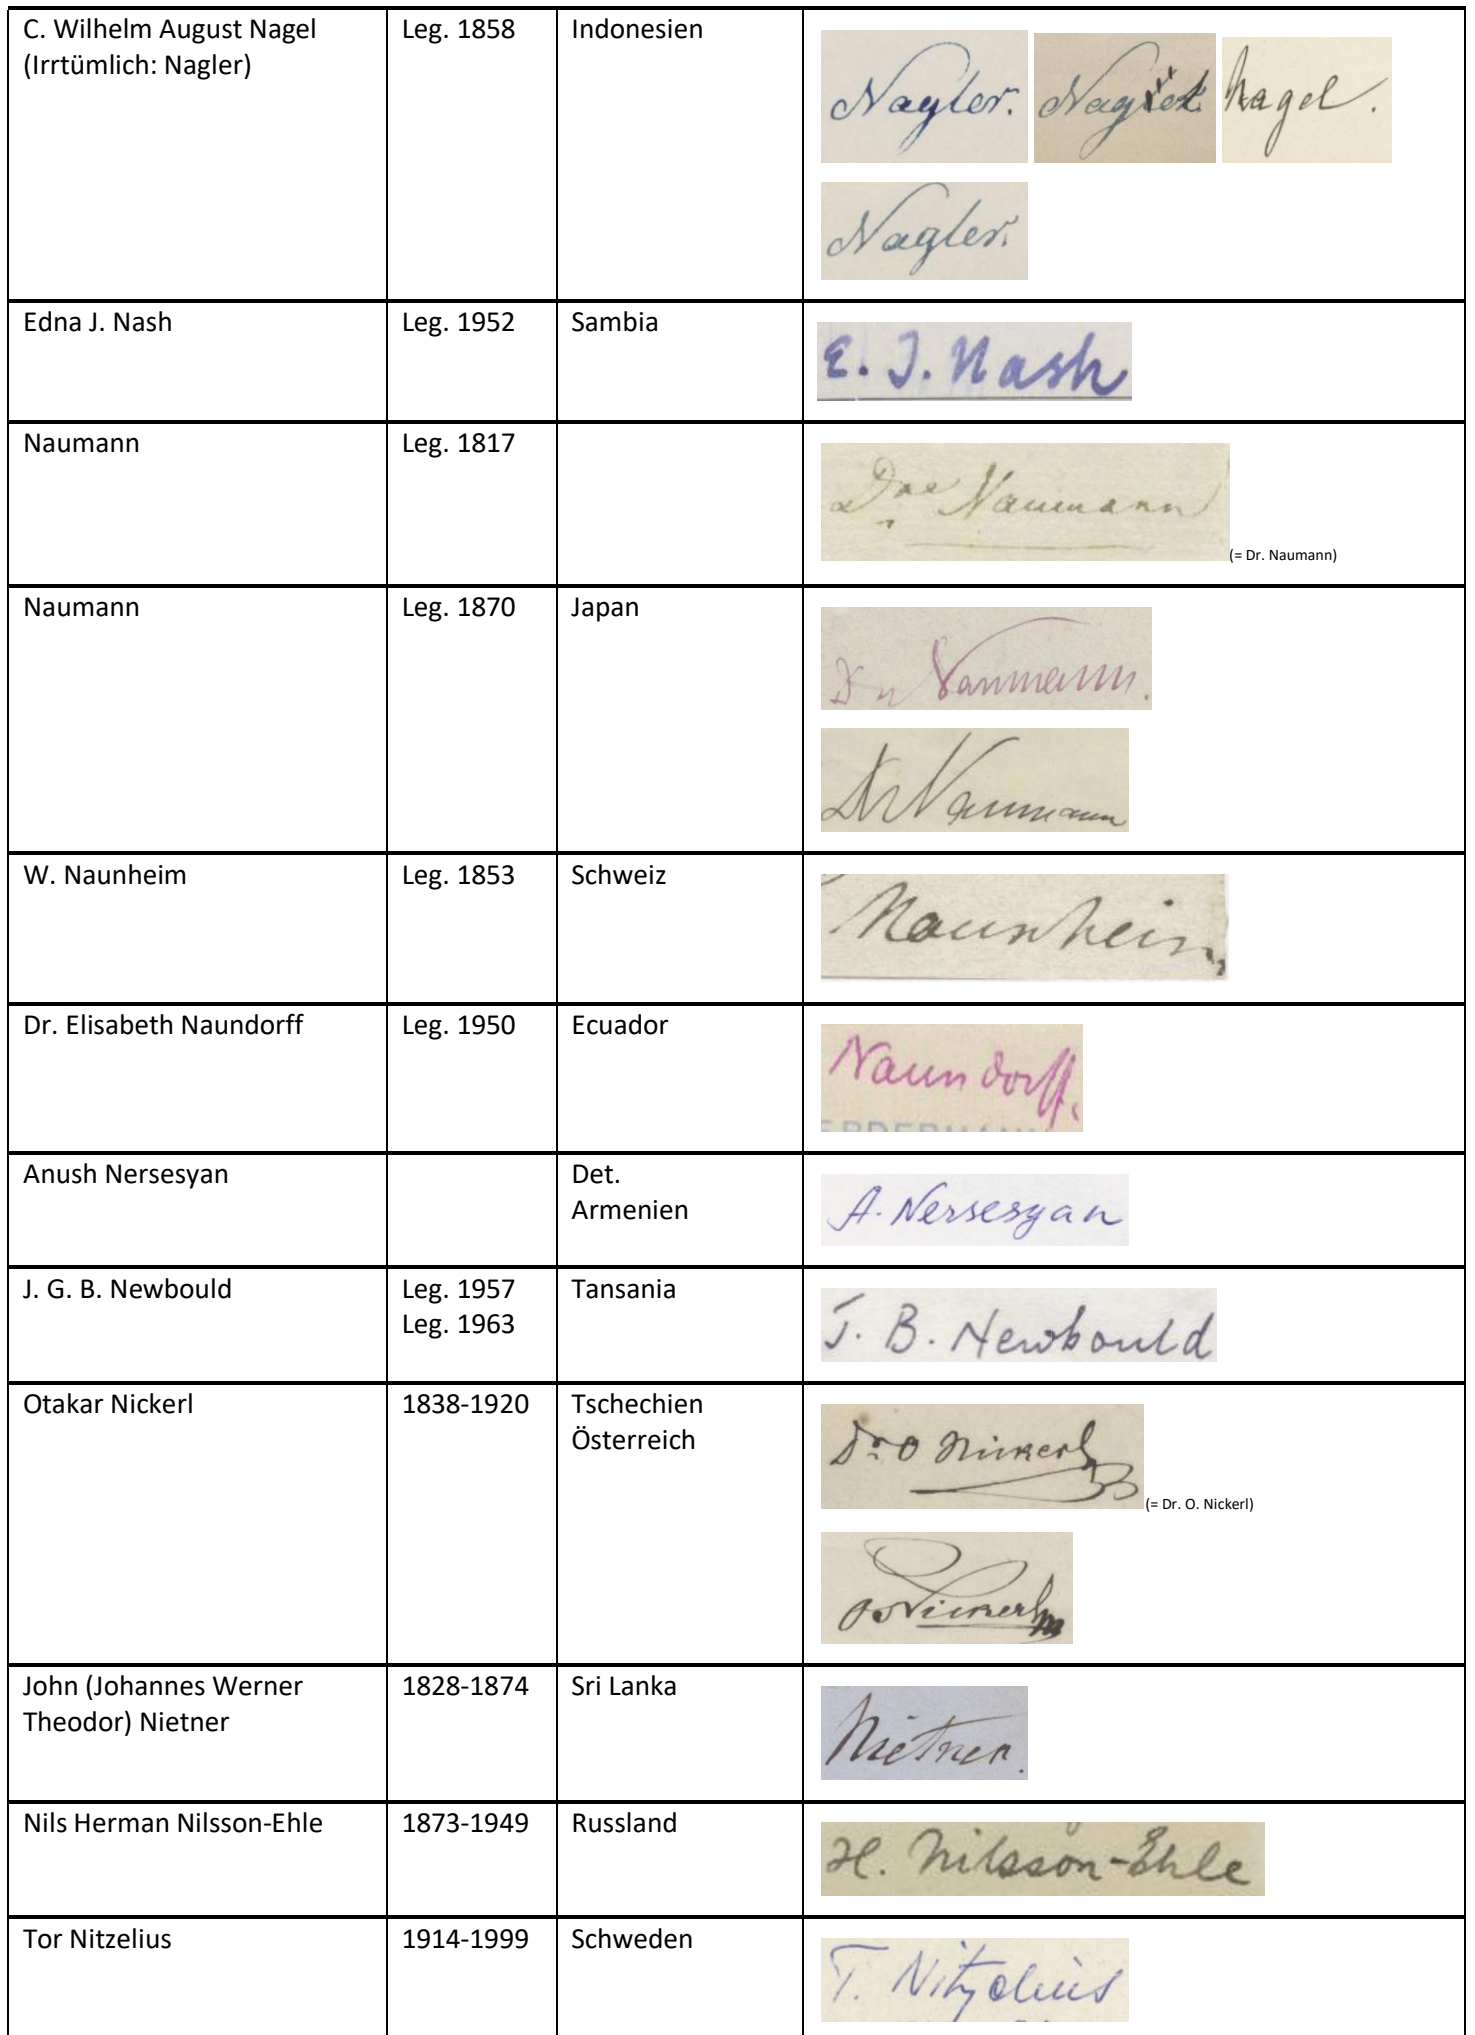 C. Wilhelm August Nagel
(Irrtümlich: Nagler)
Leg. 1858
Indonesien
Nagler.
Nagel.
Nagler.
Edna J. Nash
Leg. 1952
Sambia
E. J. Nash
Naumann
Leg. 1817
Naumann
(= Dr. Naumann)
Naumann
Leg. 1870
Japan
Dr Naumann.
Dr Naumann
W. Naunheim
Leg. 1853
Schweiz
Naunheim
Dr. Elisabeth Naundorff
Leg. 1950
Ecuador
Naundorff.
Anush Nersesyan
Det.
Armenien
A. Nersesyan
J. G. B. Newbould
Leg. 1957
Leg. 1963
Tansania
J. B. Newbould
Otakar Nickerl
1838-1920
Tschechien
Österreich
Dr. O Nickerl
(= Dr. O. Nickerl)
O Nickerl
John (Johannes Werner
Theodor) Nietner
1828-1874
Sri Lanka
Nietner.
Nils Herman Nilsson-Ehle
1873-1949
Russland
H. Nilsson-Ehle
Tor Nitzelius
1914-1999
Schweden
T. Nitzelius